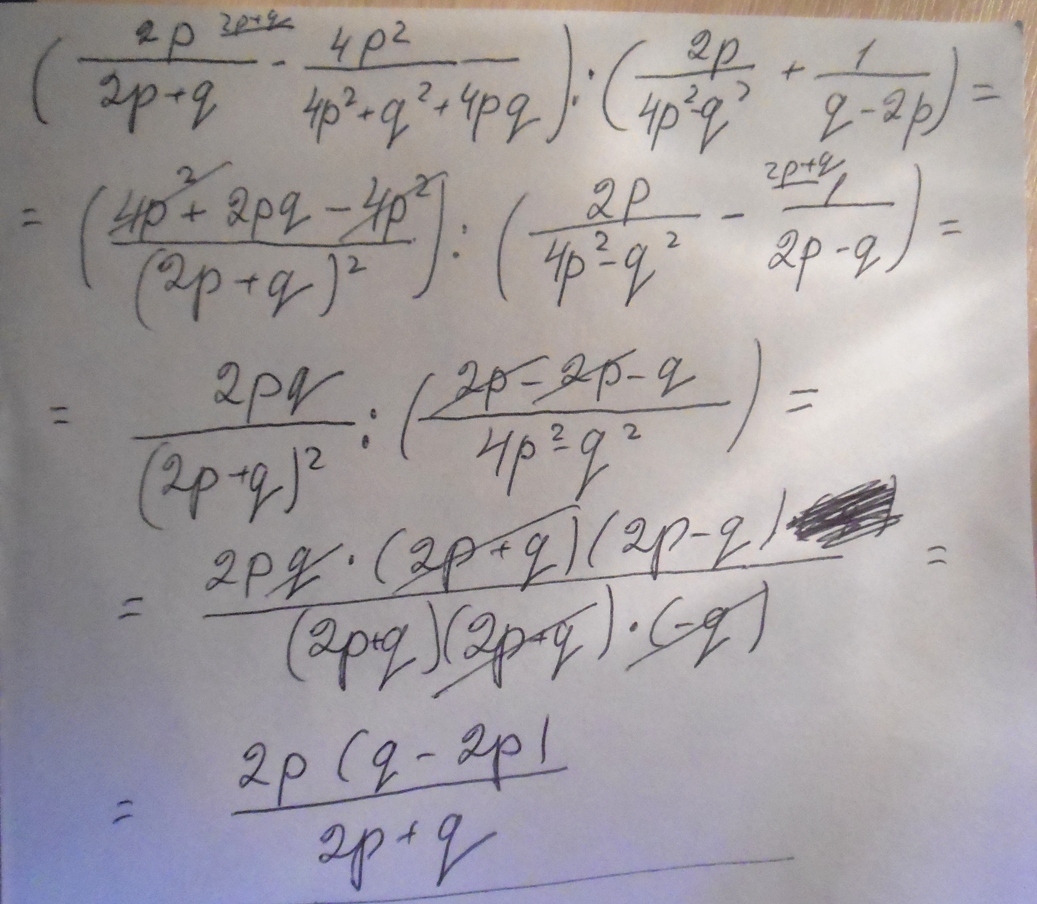 (2p/(2p+q) ^(2p+q) - 4p²/(4p²+q²+4pq)) : (2p/(4p²-q²) + 1/(q-2p)) =
= ((4p²+2pq-4p²)/(2p+q)²) : (2p/(4p²-q²) - ^(2p+q) 1/(2p-q)) =
= 2pq/(2p+q)² : ((2p-2p-q)/(4p²-q²)) =
= (2pq·(2p+q)(2p-q))/((2p+q)(2p+q)·(-q)) =
= 2p(q-2p)/(2p+q)